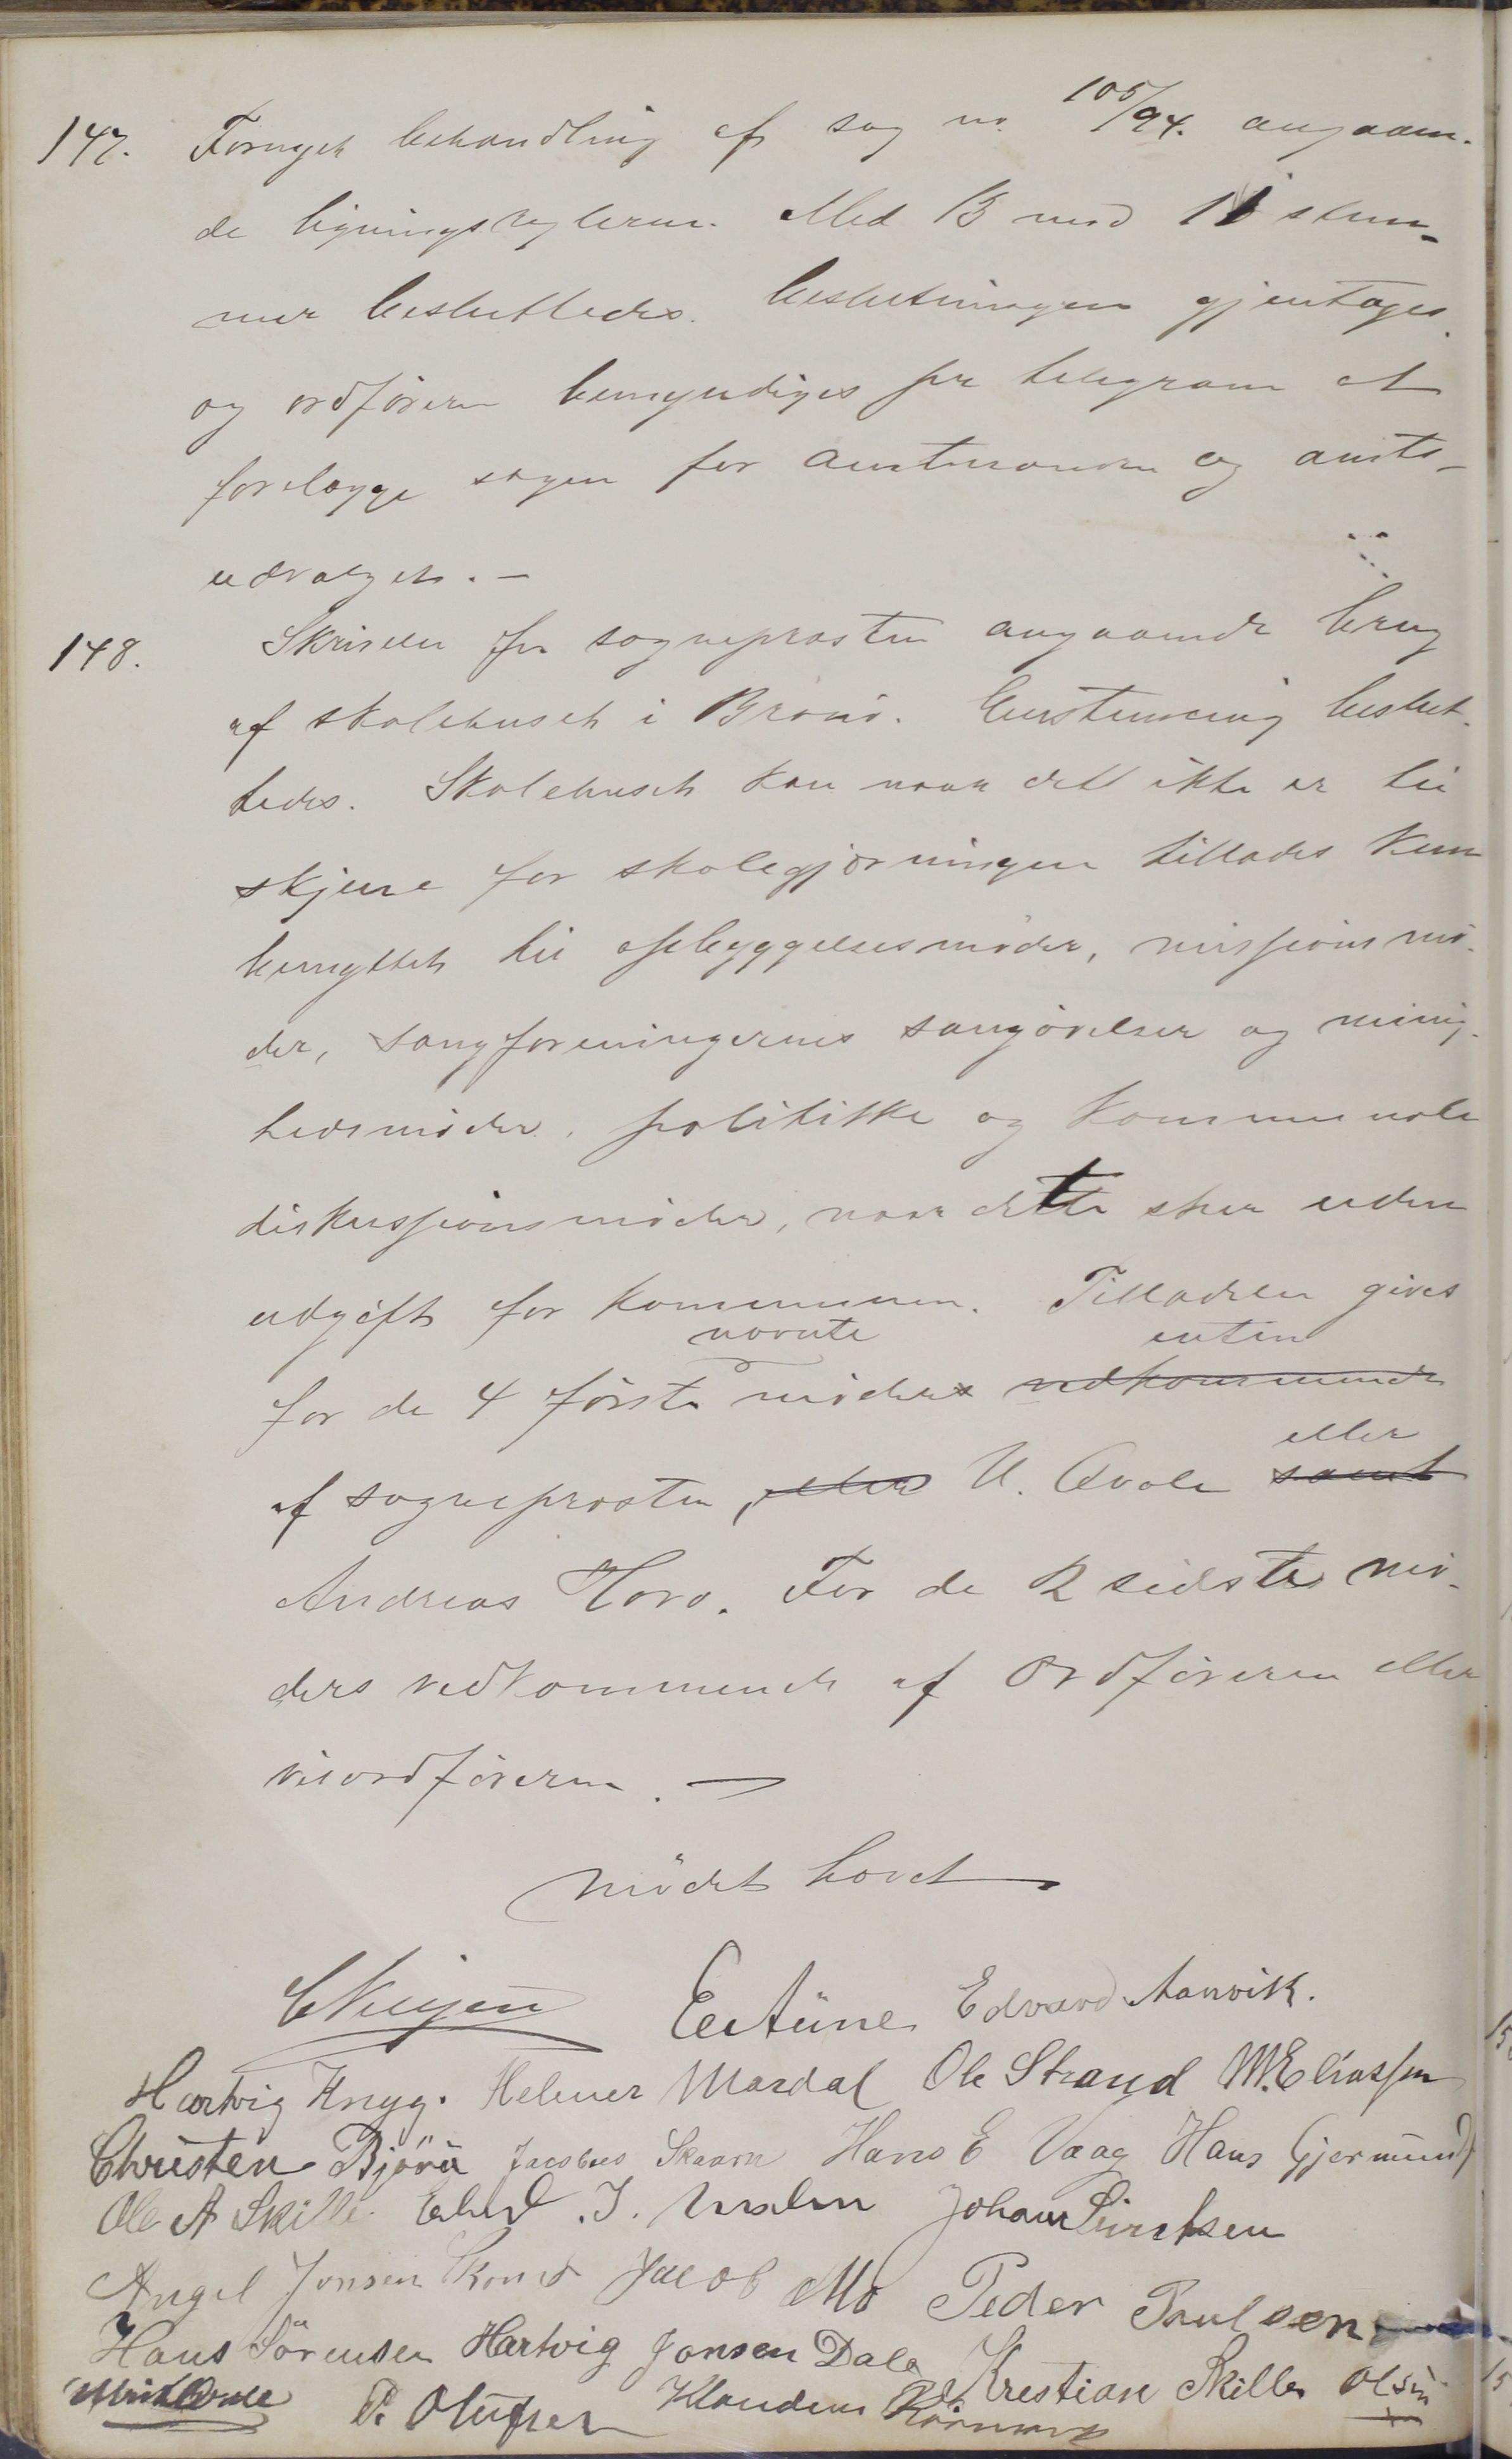 147. Fornyet behandling af sag no. 105/94. angaaen-
de ligningsreglerne. Med 13 mod 11 stem-
mer besluttedes. Beslutningen gjentages
og ordføreren bemyndiges pr telegram at
forelægge sagen for amtmanden og amts-
udvalget. –
148. Skrivelse fra sogneprosten angaaende brug
af skolehuset i Brønø. Enstemmig beslut-
tedes. Skolehuset kan naar det ikke er til
skjene for skolegjerningen tillades kun
benyttet til opbyggelsesmøder, missionsmø-
der, sangforeningernes sangøvelser og menig-
hedsmøder, politiske og kommunale
diskussionsmøder, naar dette sker uden
udgift for kommunen. Tilladelse gives
nævnte enten
for de 4 første møder vedkommende
eller
af sogneprosten, eller U. Qvale samt
Andreas Horn. For de 2 sidste mø-
ders vedkommende af ordføreren eller
viseordføreren. –
Mødet hævet
E Aune Edvard Aarvik.
Hartvig Kryg. Helmer Mardal Ole Strand M. Eliassen
Christen Bjørn Jacobus Skaarn Hans E Vaag Hans Gjermund
Ole A Skille. J. Johan Sivertsen
Angel Jonsen Jacob Mo Peder Paulsen
Hans Sørensen Hartvig Jonsen Dale Krestian Skille Olsen
Ulrik Qvale P. Olufsen Klaudius